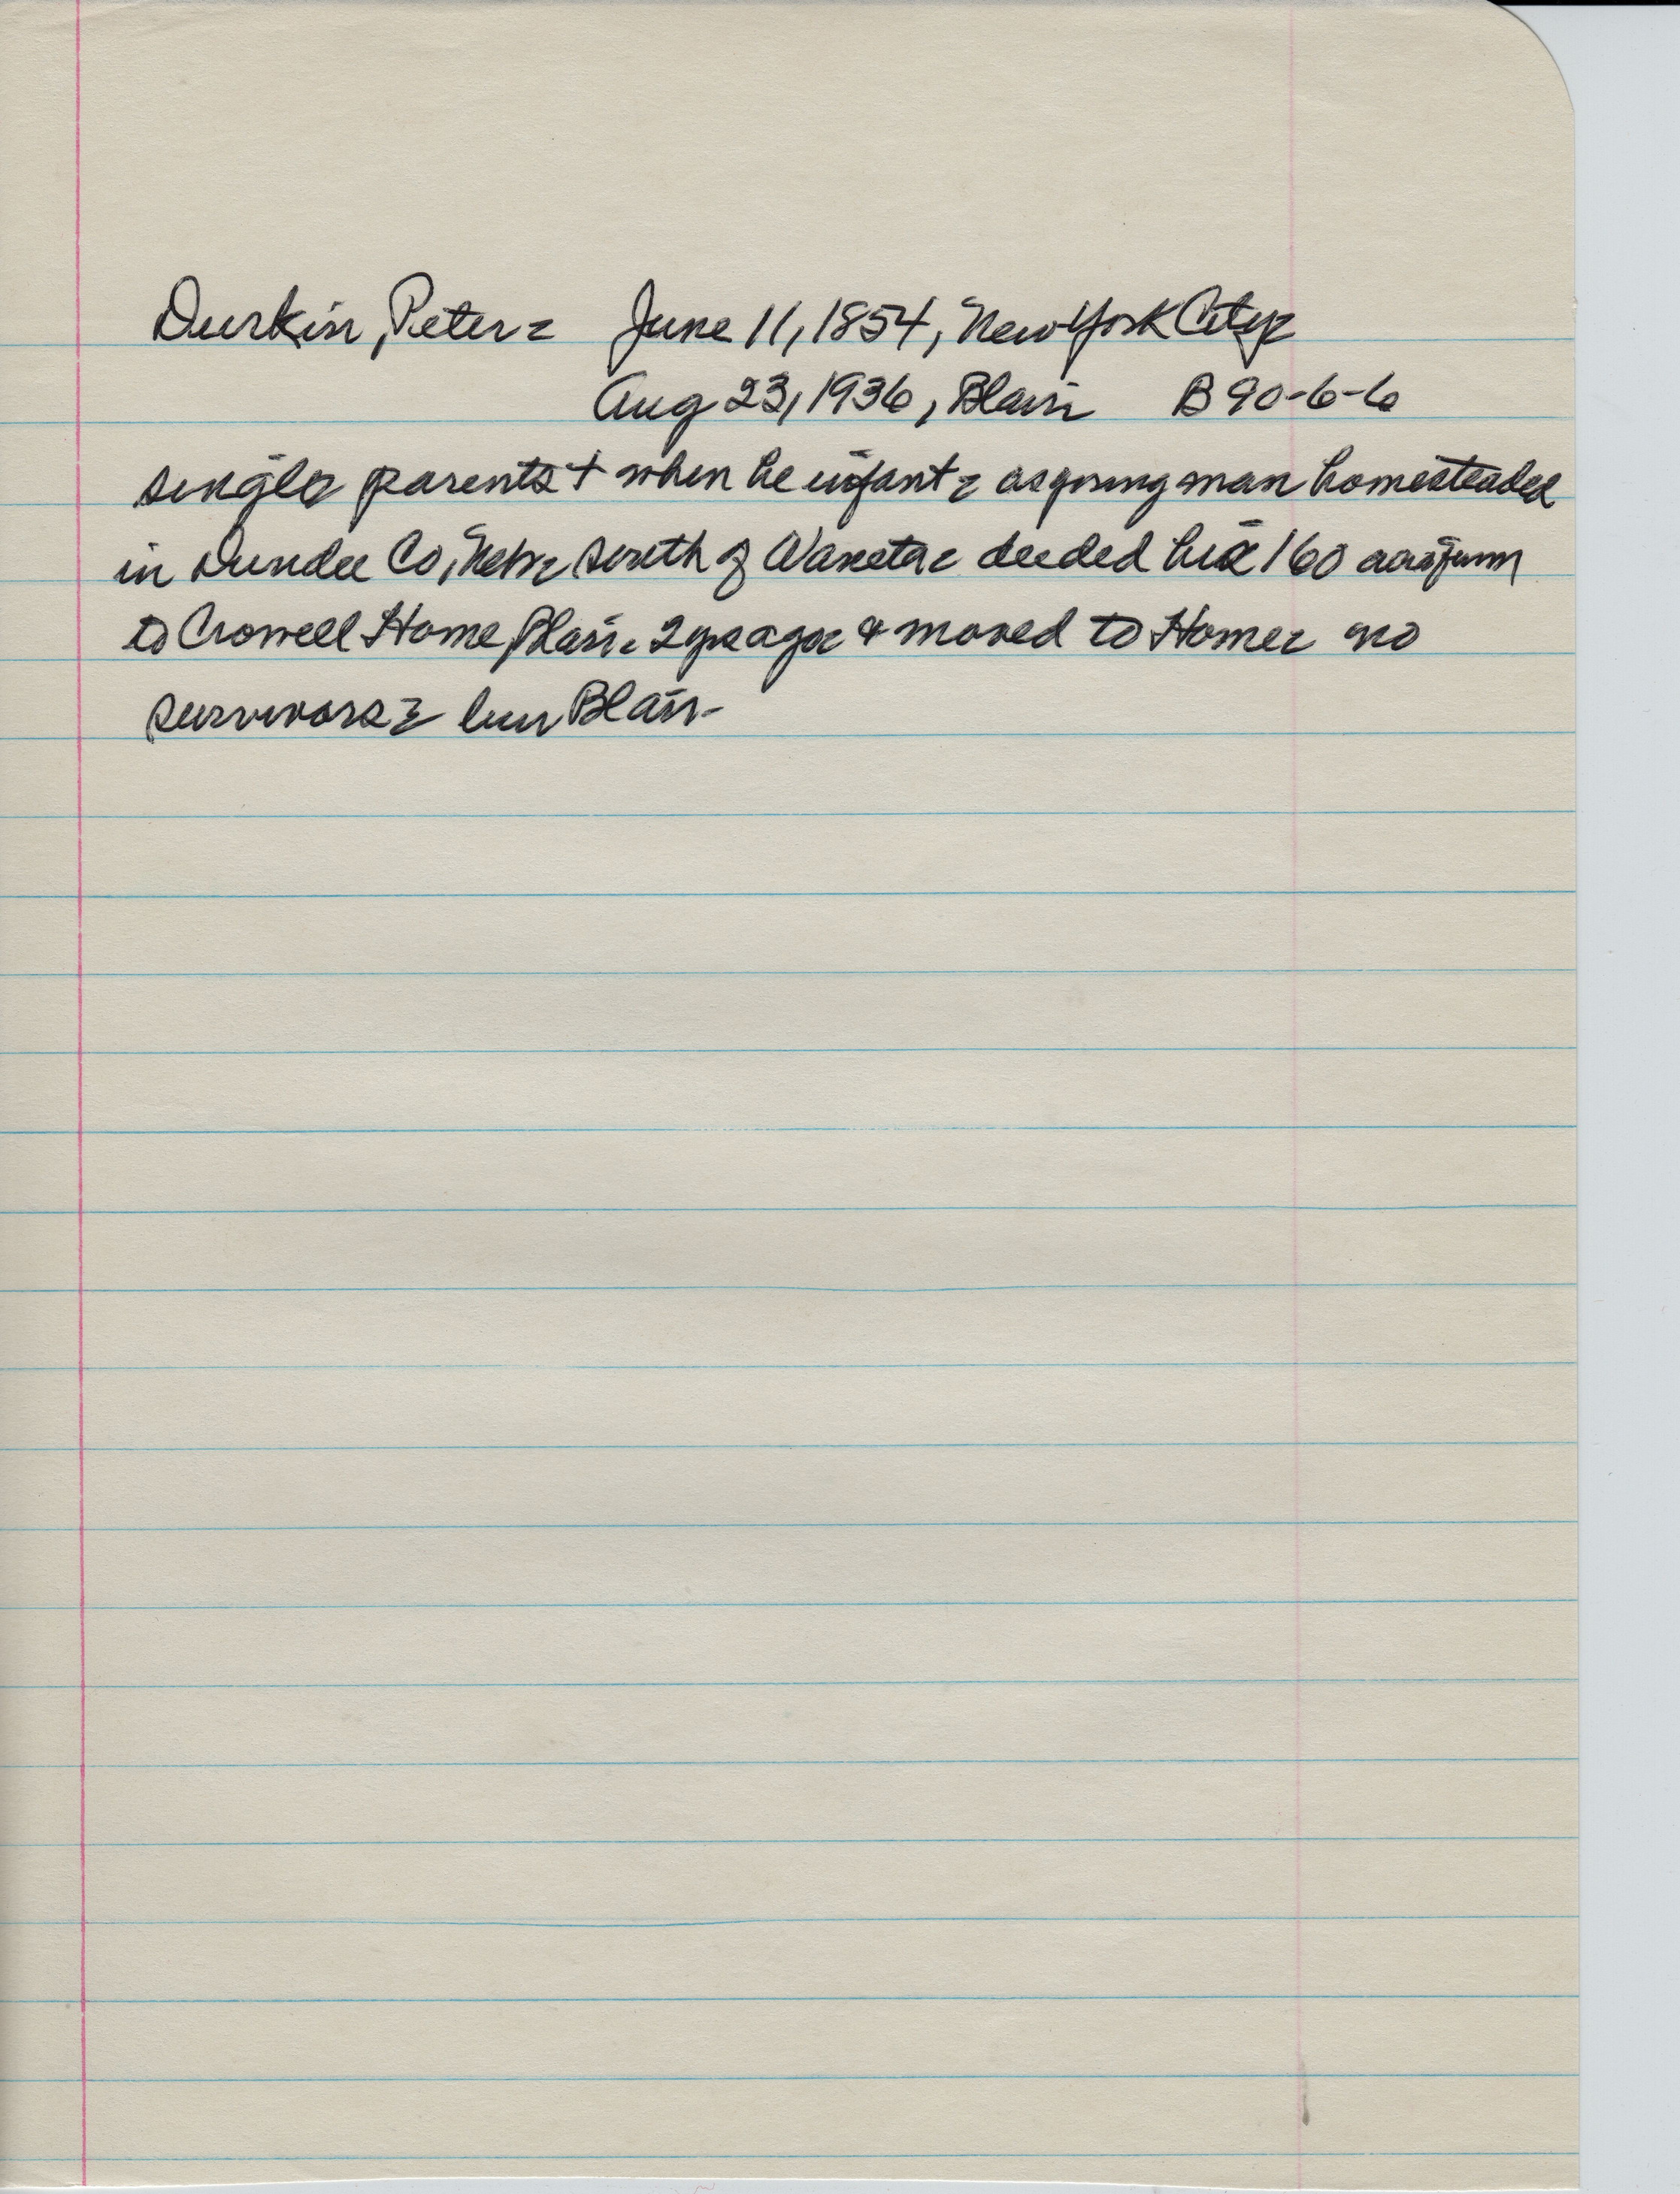 Durkin, Peter - June 11, 1854, New York City -
Aug 23, 1936, Blair B 90-6-6
single parents + when he infant - as young man homesteaded
in Dundee Co, Nebr - south of Waneta - deeded his 160 acre farm
to Crowell Home, Blair - 2 yrs ago - & moved to Home - no
survivors - bur Blair -